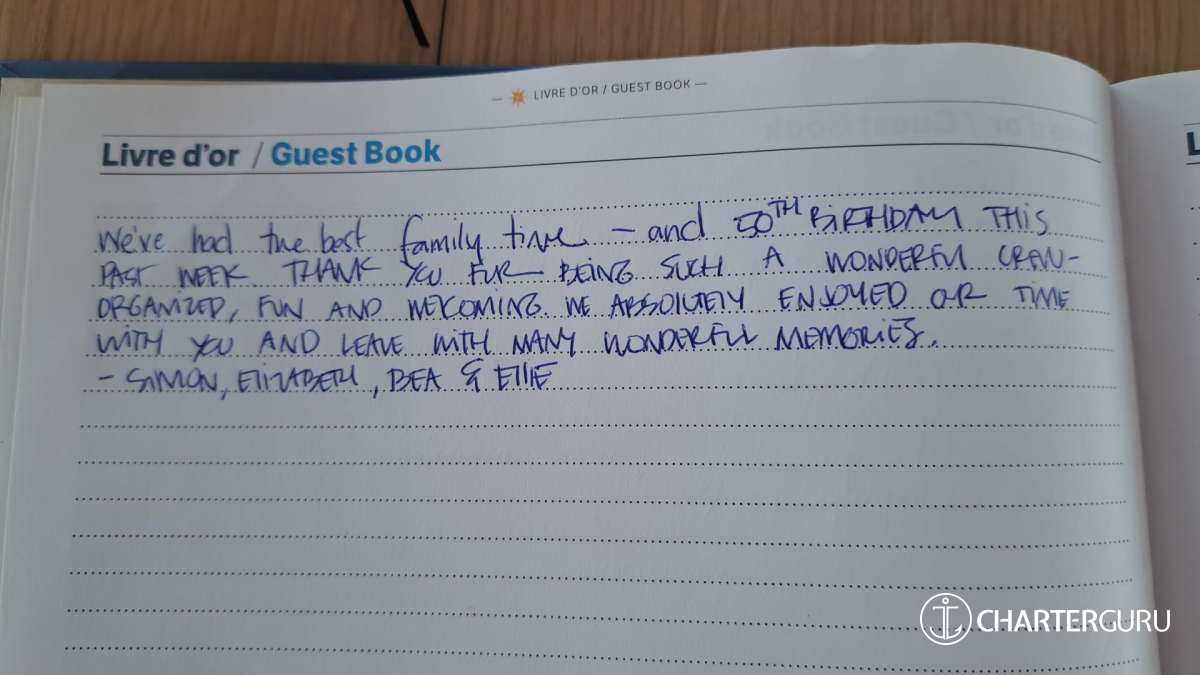 — LIVRE D'OR / GUEST BOOK —
Livre d'or / Guest Book
We've had the best family time – and 50TH BIRTHDAY THIS
PAST WEEK. THANK YOU FOR BEING SUCH A WONDERFUL CREW-
ORGANIZED, FUN AND WELCOMING. WE ABSOLUTELY ENJOYED OUR TIME
WITH YOU AND LEAVE WITH MANY WONDERFUL MEMORIES.
- SIMON, ELIZABETH, BEA & ELLIE
L
CHARTERGURU